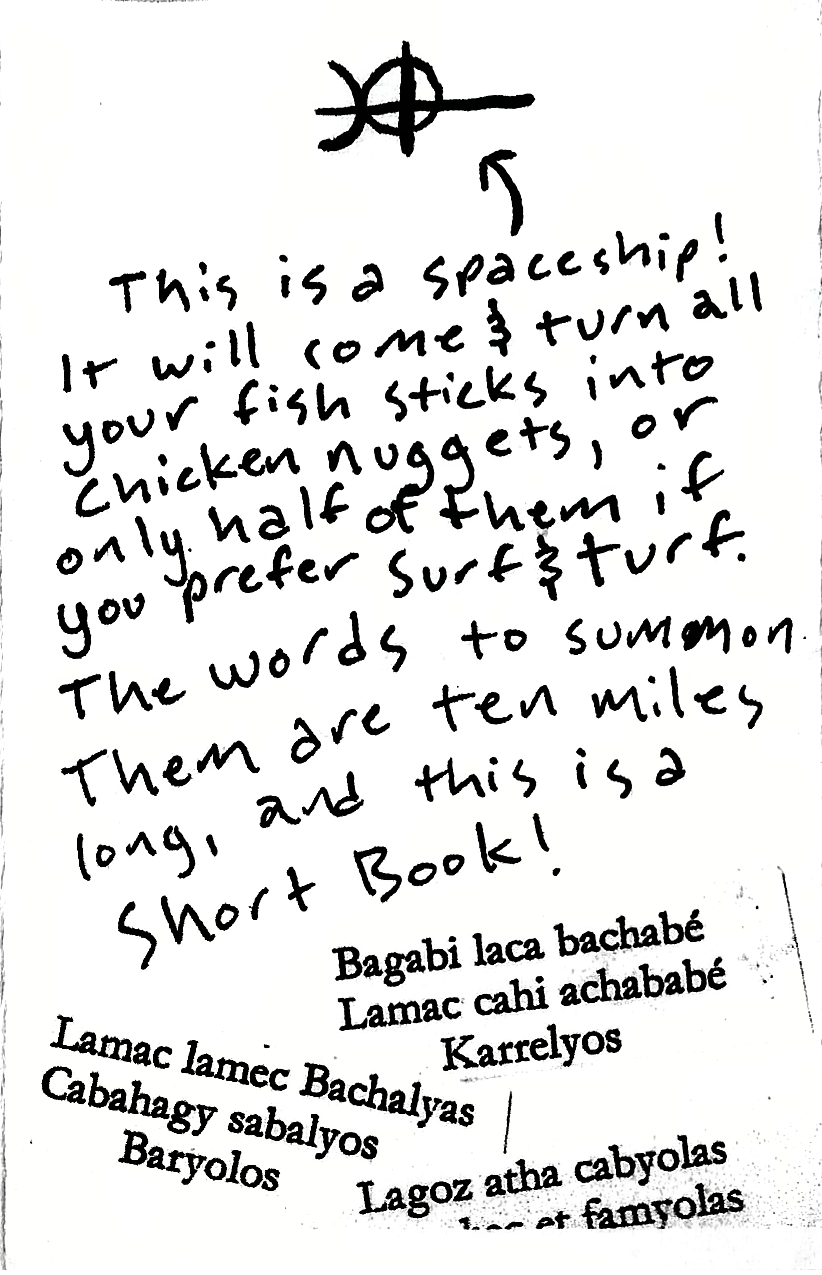 This is a spaceship!
It will come & turn all
your fish sticks into
chicken nuggets, or
only half of them if
you prefer surf & turf.
The words to summon
Them are ten miles
long, and this is a
Short Book!
Bagabi laca bachabé
Lamac cahi achababé
Karrelyos
Lamac lamec Bachalyas
Cabahagy sabalyos
Baryolos
Lagoz atha cabyolas
et famyolas